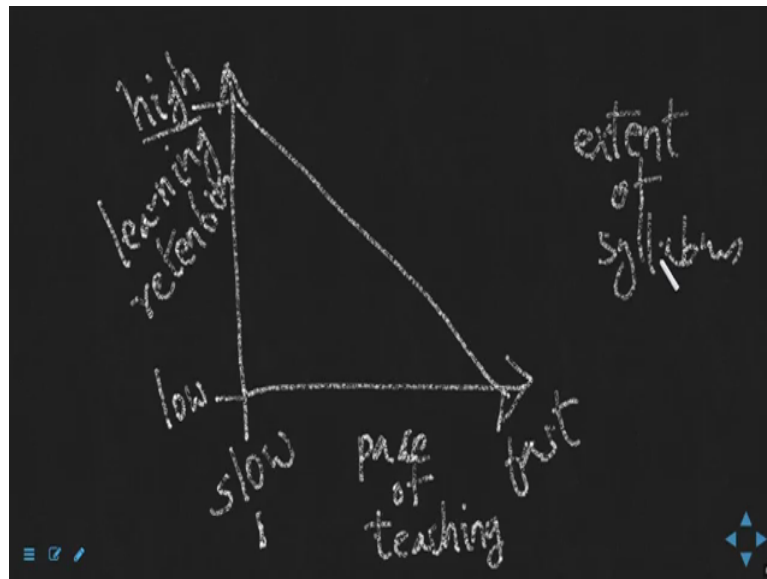 high
learning
retention
low
slow
pace
of
teaching
fast
extent
of
syllabus